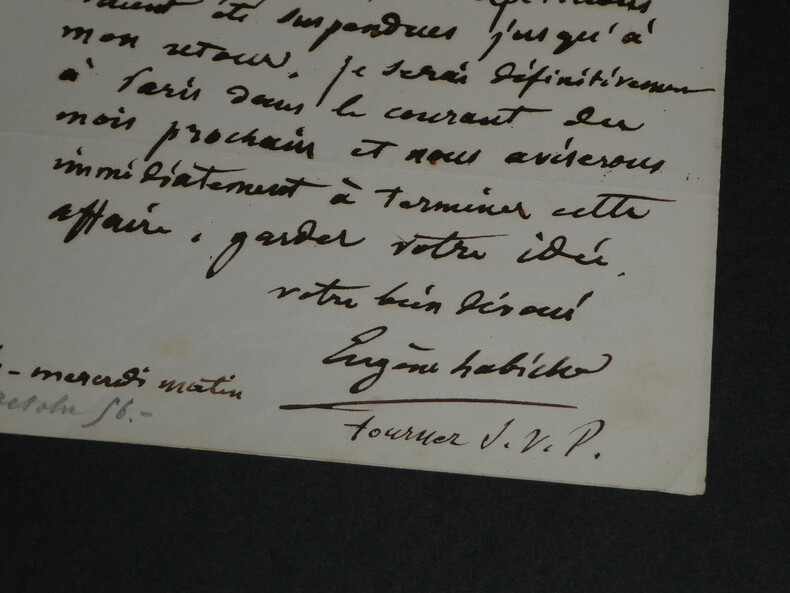 été suspendues jusqu'à
mon retour. je serai définitivement
à Paris dans le courant du
mois prochain et nous aviserons
immédiatement à terminer cette
affaire. garder votre idée.
votre bien dévoué
Eugène Labiche
- mercredi matin
octobre 56.-
tourner S. V. P.